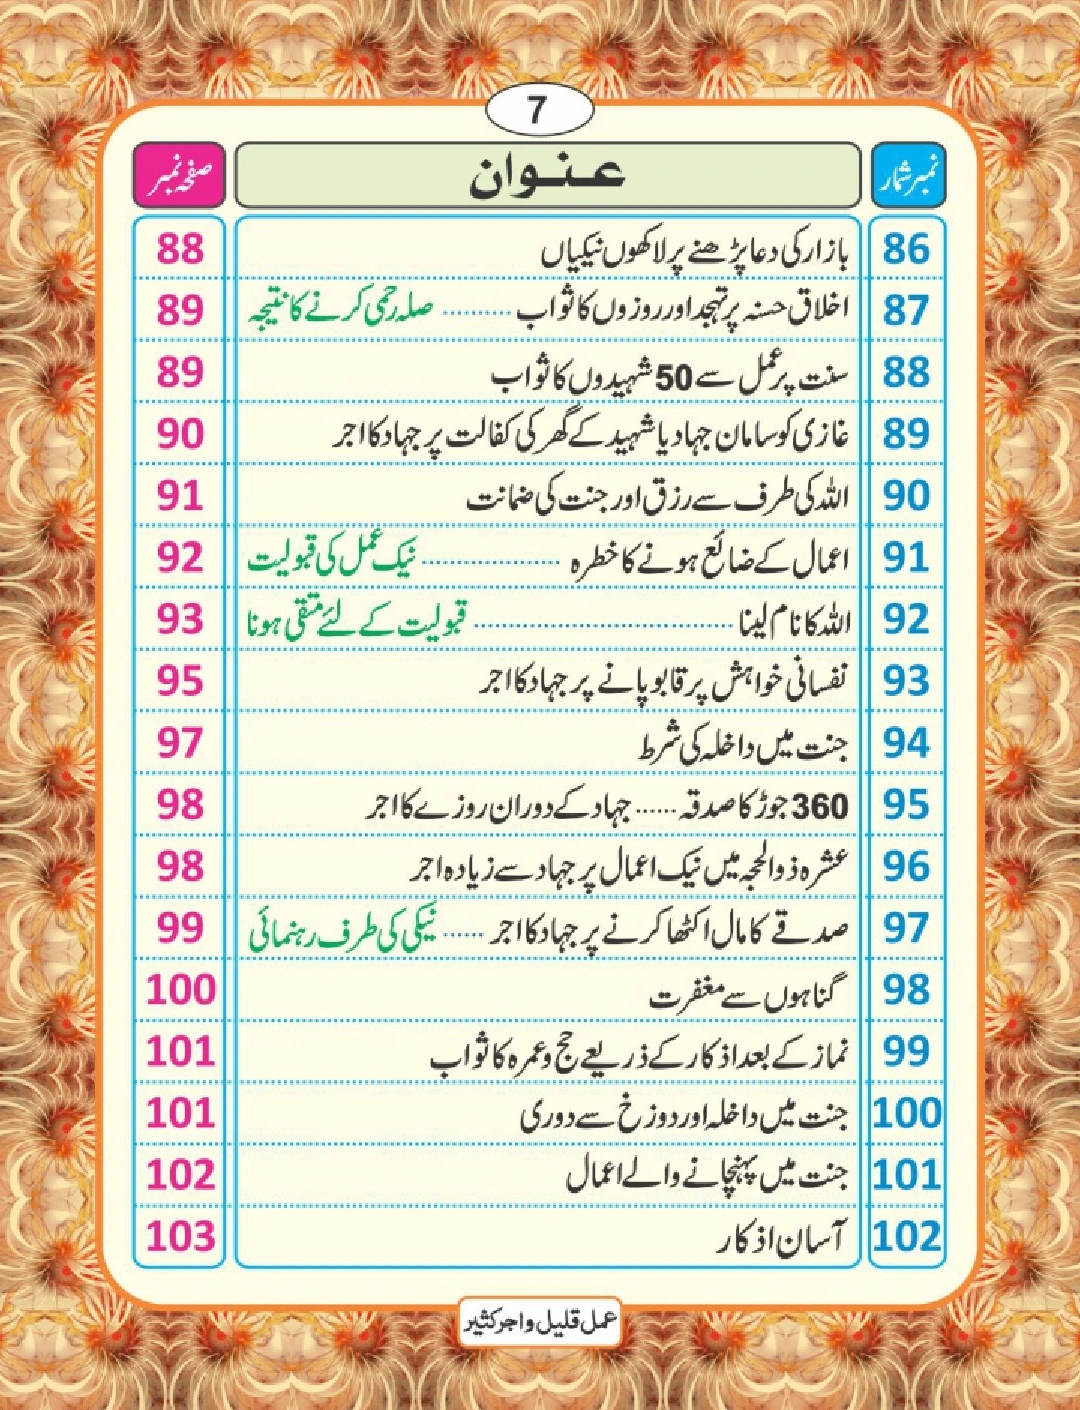 7
نمبر شمار عنوان صفحہ نمبر
86 بازار کی دعا پڑھنے پر لاکھوں نیکیاں 88
87 اخلاق حسنہ پر تہجد اور روزوں کا ثواب .......... صلہ رحمی کرنے کا نتیجہ 89
88 سنت پر عمل سے 50 شہیدوں کا ثواب 89
89 غازی کو سامان جہاد یا شہید کے گھر کی کفالت پر جہاد کا اجر 90
90 اللہ کی طرف سے رزق اور جنت کی ضمانت 91
91 اعمال کے ضائع ہونے کا خطرہ .................... نیک عمل کی قبولیت 92
92 اللہ کا نام لینا ...................................... قبولیت کے لئے متقی ہونا 93
93 نفسانی خواہش پر قابو پانے پر جہاد کا اجر 95
94 جنت میں داخلہ کی شرط 97
95 360 جوڑ کا صدقہ ...... جہاد کے دوران روزے کا اجر 98
96 عشرہ ذوالحجہ میں نیک اعمال پر جہاد سے زیادہ اجر 98
97 صدقے کا مال اکٹھا کرنے پر جہاد کا اجر ...... نیکی کی طرف رہنمائی 99
98 گناہوں سے مغفرت 100
99 نماز کے بعد اذکار کے ذریعے حج و عمرہ کا ثواب 101
100 جنت میں داخلہ اور دوزخ سے دوری 101
101 جنت میں پہنچانے والے اعمال 102
102 آسان اذکار 103
عمل قلیل و اجر کثیر